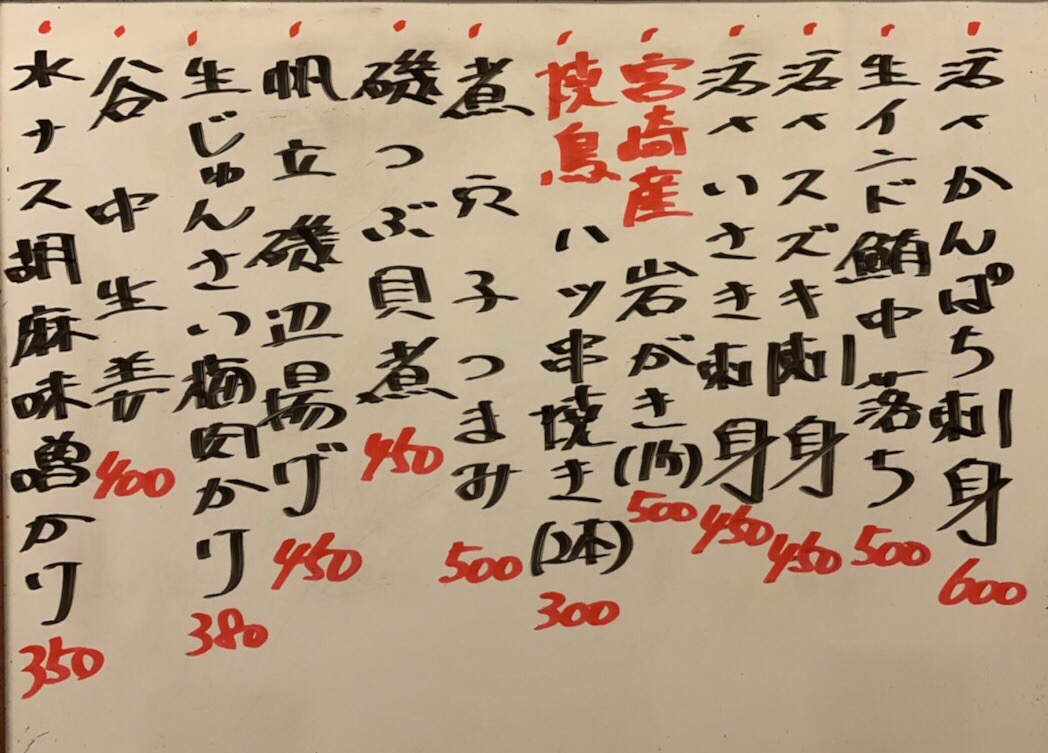 活〆かんぱち刺身 600
生インド鮪中落ち 500
活〆スズキ刺身 450
活〆いさき刺身 450
宮崎産 岩がき(1ケ) 500
焼鳥 ハツ串焼き(2本) 300
煮穴子つまみ 500
磯つぶ貝煮 450
帆立磯辺揚げ 450
生じゅんさい梅肉かけ 380
谷中生姜 400
水ナス胡麻味噌かけ 350